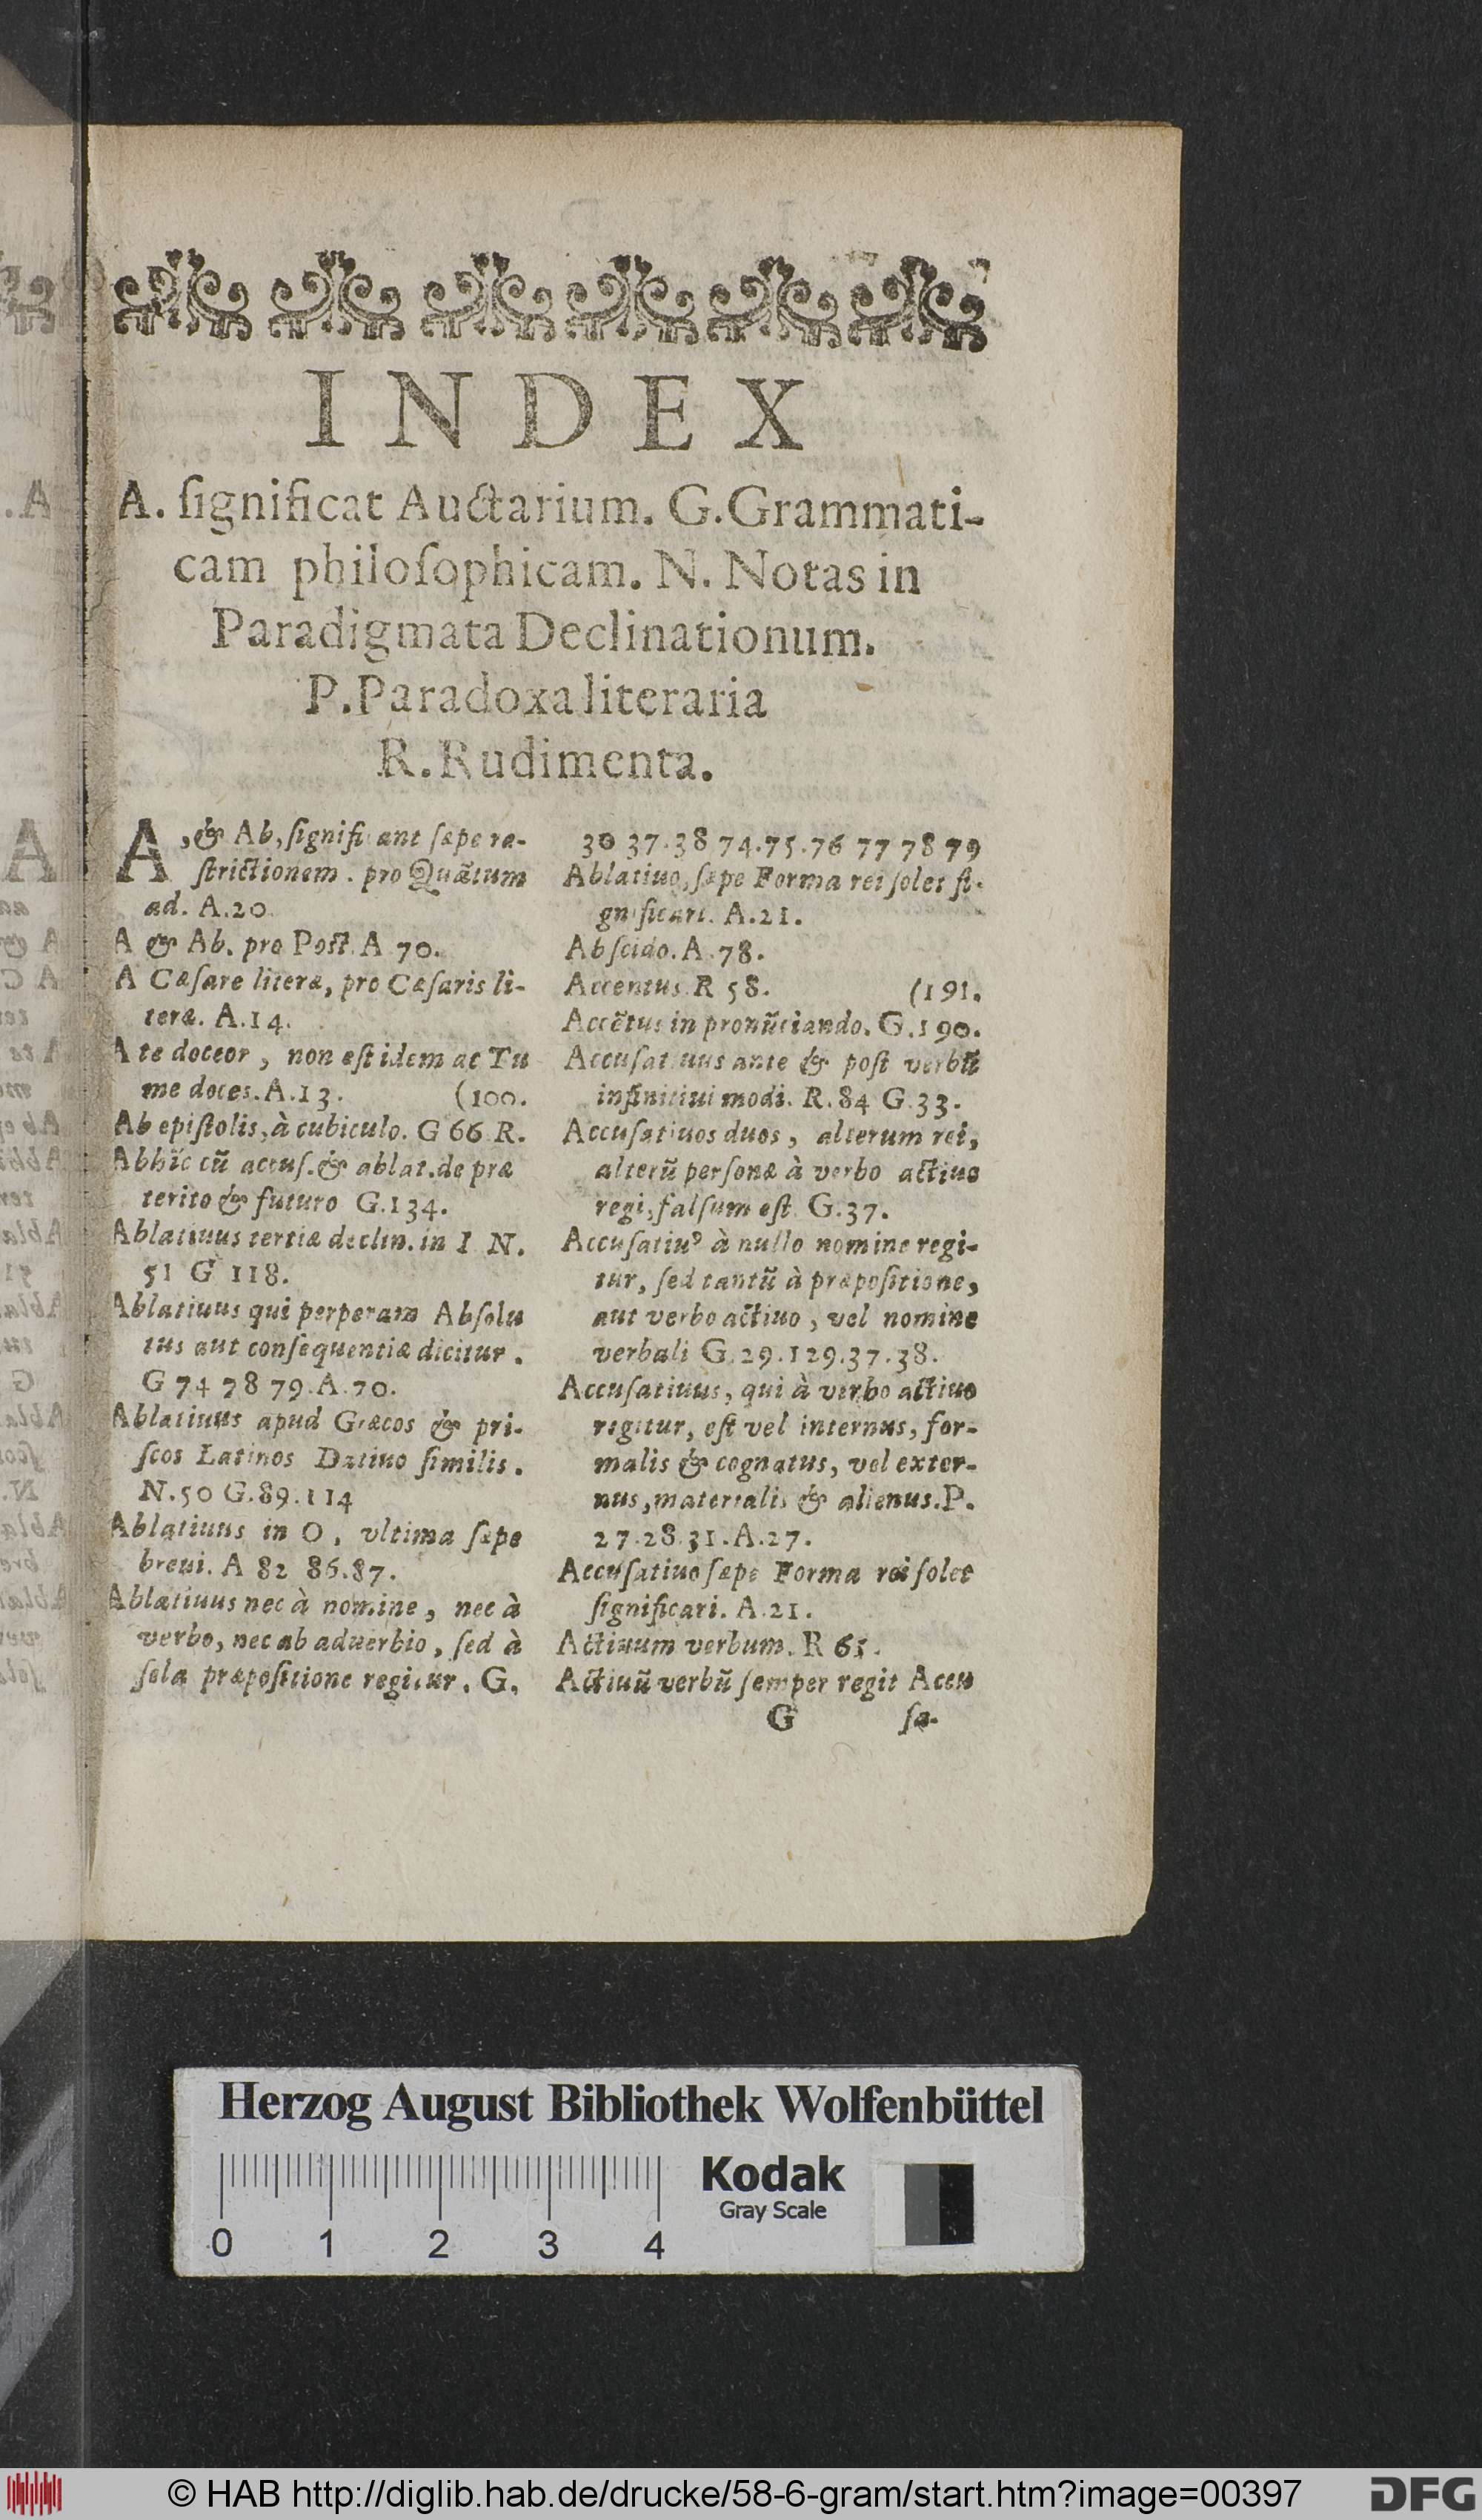 INDEX
A. ſignificat Auctarium. G. Grammati-
cam philoſophicam. N. Notas in
Paradigmata Declinationum.
P. Paradoxa literaria
R. Rudimenta.
A, & Ab, ſignificant ſæpe re-
ſtrictionem. pro Quãtum
ad. A.20
A & Ab. pro Poſt. A 70.
A Cæſare literæ, pro Cæſaris li-
teræ. A.14.
A te doceor, non eſt idem ac Tu
me doces. A.13. (100.
Ab epiſtolis, à cubiculo. G 66 R.
Abhĩc cũ accuſ. & ablat. de præ
terito & futuro G.134.
Ablatiuus tertiæ declin. in I N.
51 G 118.
Ablatiuus qui perperam Abſolu
tus aut conſequentiæ dicitur.
G 74 78 79. A.70.
Ablatiuus apud Græcos & pri-
ſcos Latinos Datiuo ſimilis.
N.50 G.89.114
Ablatiuus in O, vltima ſæpe
breui. A 82 86.87.
Ablatiuus nec à nomine, nec à
verbo, nec ab aduerbio, ſed à
ſola præpoſitione regitur. G.
30 37.38 74.75.76 77 78 79
Ablatiuo, ſæpe Forma rei ſolet ſi-
gnificari. A.21.
Abſcido. A.78.
Accentus R 58. (191.
Accẽtus in pronũciando. G.190.
Accuſatiuus ante & poſt verbũ
infinitiui modi. R.84 G.33.
Accuſatiuos duos, alterum rei,
alterũ perſonæ à verbo actiuo
regi, falſum eſt. G.37.
Accuſatiuꝰ à nullo nomine regi-
tur, ſed tantũ à præpoſitione,
aut verbo actiuo, vel nomine
verbali G.29.129.37.38.
Accuſatiuus, qui à verbo actiuo
regitur, eſt vel internus, for-
malis & cognatus, vel exter-
nus, materialis & alienus. P.
27.28.31. A.27.
Accuſatiuo ſæpe Forma rei ſolet
ſignificari. A.21.
Actiuum verbum. R 65.
Actiuũ verbũ ſemper regit Accu
G ſa-
Herzog August Bibliothek Wolfenbüttel
Kodak
Gray Scale
0 1 2 3 4
© HAB http://diglib.hab.de/drucke/58-6-gram/start.htm?image=00397
DFG